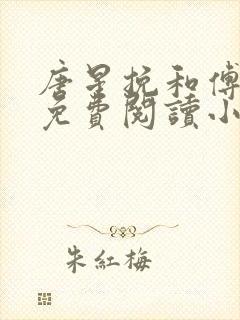 唐星挽和傅
免費閱讀小
朱紅梅